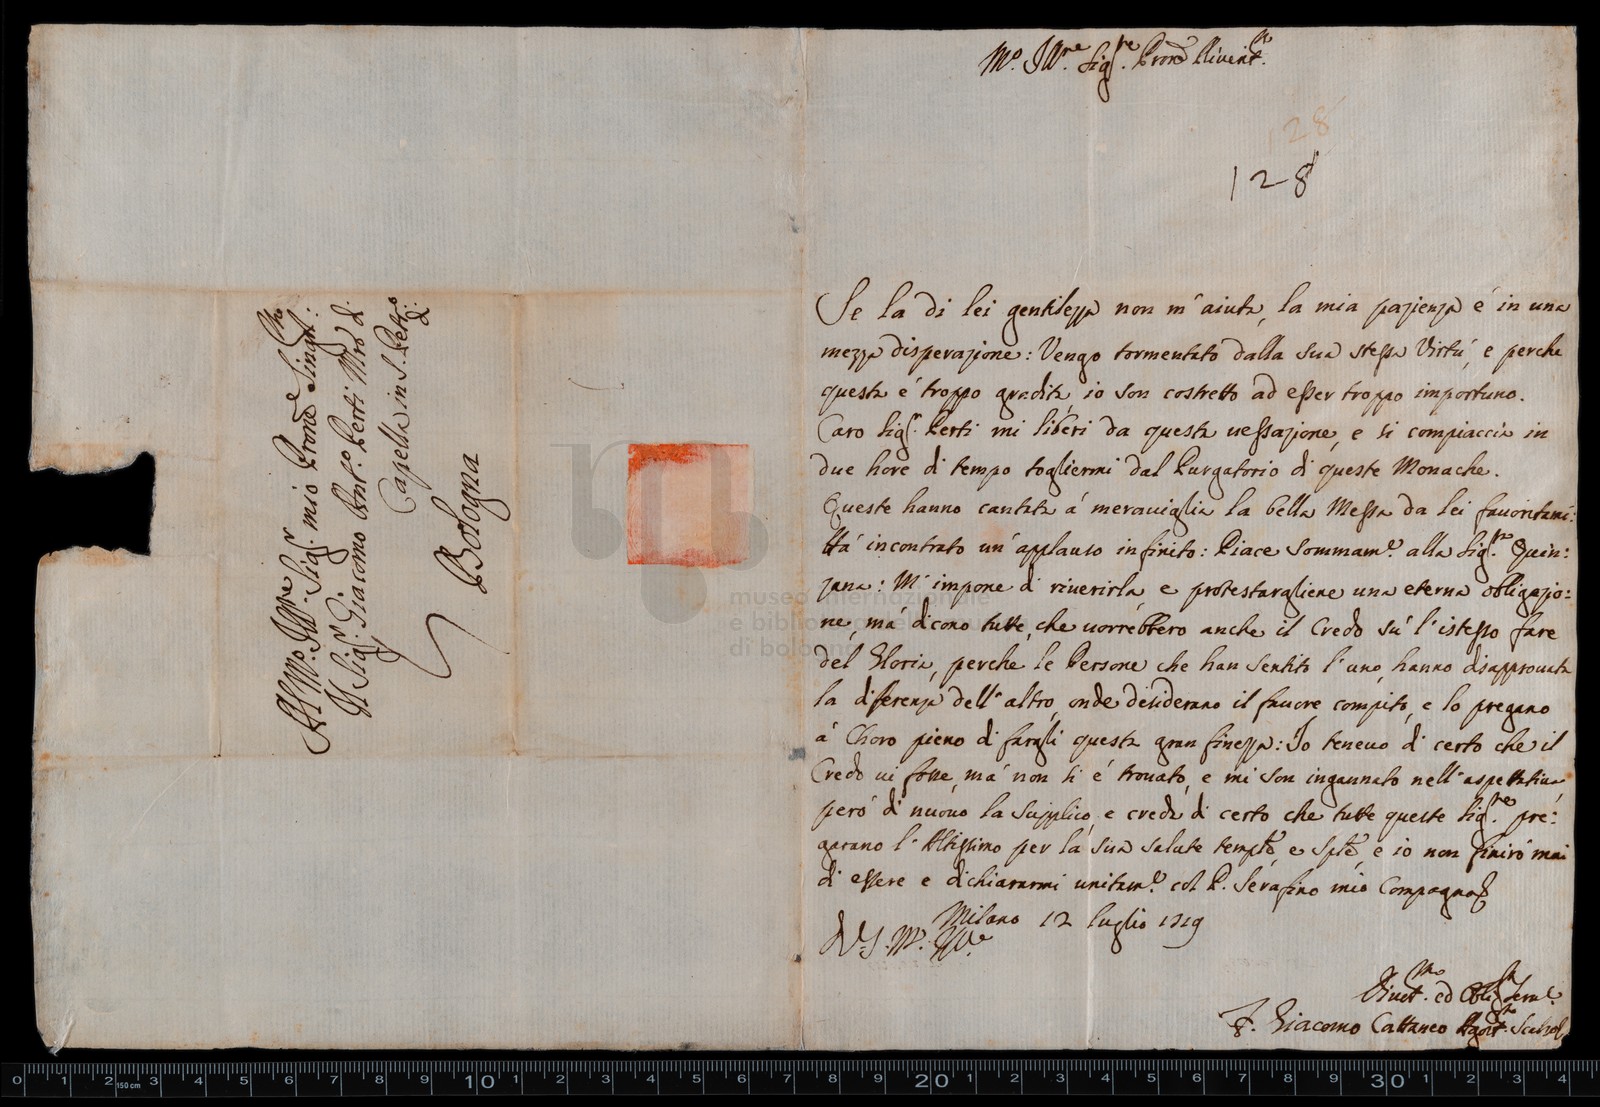 Al M.to Ill.re Sig.r mio P.rone Sing.mo:
Il Sig.r Giacomo Ant.o Perti M.ro di
Capella in S. Petr.o
d:
Bologna
M.o Ill.re Sig.re P.rone Riverit.mo
128
128
Se la di lei gentilezza non m'aiuta, la mia pazienza é in una
mezza disperazione: Vengo tormentato dalla sua stessa Virtú, e perche
questa é troppo gradita, io son costretto ad esser troppo importuno.
Caro Sig.r Perti mi liberi da questa uessazione, e si compiaccia in
due hore di tempo togliermi dal Purgatorio di queste Monache.
Queste hanno cantata á merauiglia la bella Messa da lei fauoritami:
Há incontrato un'applauso infinito: Piace sommam.e alla Sig.ra Quin:
zana: M'impone di riuerirla, e protestargliene una eterna obligazio:
ne, má dicono tutte, che uorrebbero anche il Credo sú l'istesso fare
del Gloria, perche le Persone che han sentito l'uno, hanno disapprouata
la diferenza dell'altro, onde desiderano il fauore compito, e lo pregano
á Choro pieno di fargli questa gran finezza: Io teneuo di certo che il
Credo ui fosse, má non si é trouato, e mi son ingannato nell'aspettatiua,
peró di nuouo la supplico, e creda di certo che tutte queste Sig.re pre:
garano l'Altissimo per la sua salute temp.le, e sp.le, e io non finiró mai
di essere e dichiararmi unitam.e col P. Serafino mio Compagno
Milano 12 luglio 1719
D V.S. M.o Ill.re
Diuot.mo ed Obl.mo Seru.e
F. Giacomo Cattaneo Agost.no Scalzo
museo internazionale
e biblioteca della musica
di bologna
0 1 2 150 cm 3 4 5 6 7 8 9 10 1 2 3 4 5 6 7 8 9 20 1 2 3 4 5 6 7 8 9 30 1 2 3 4